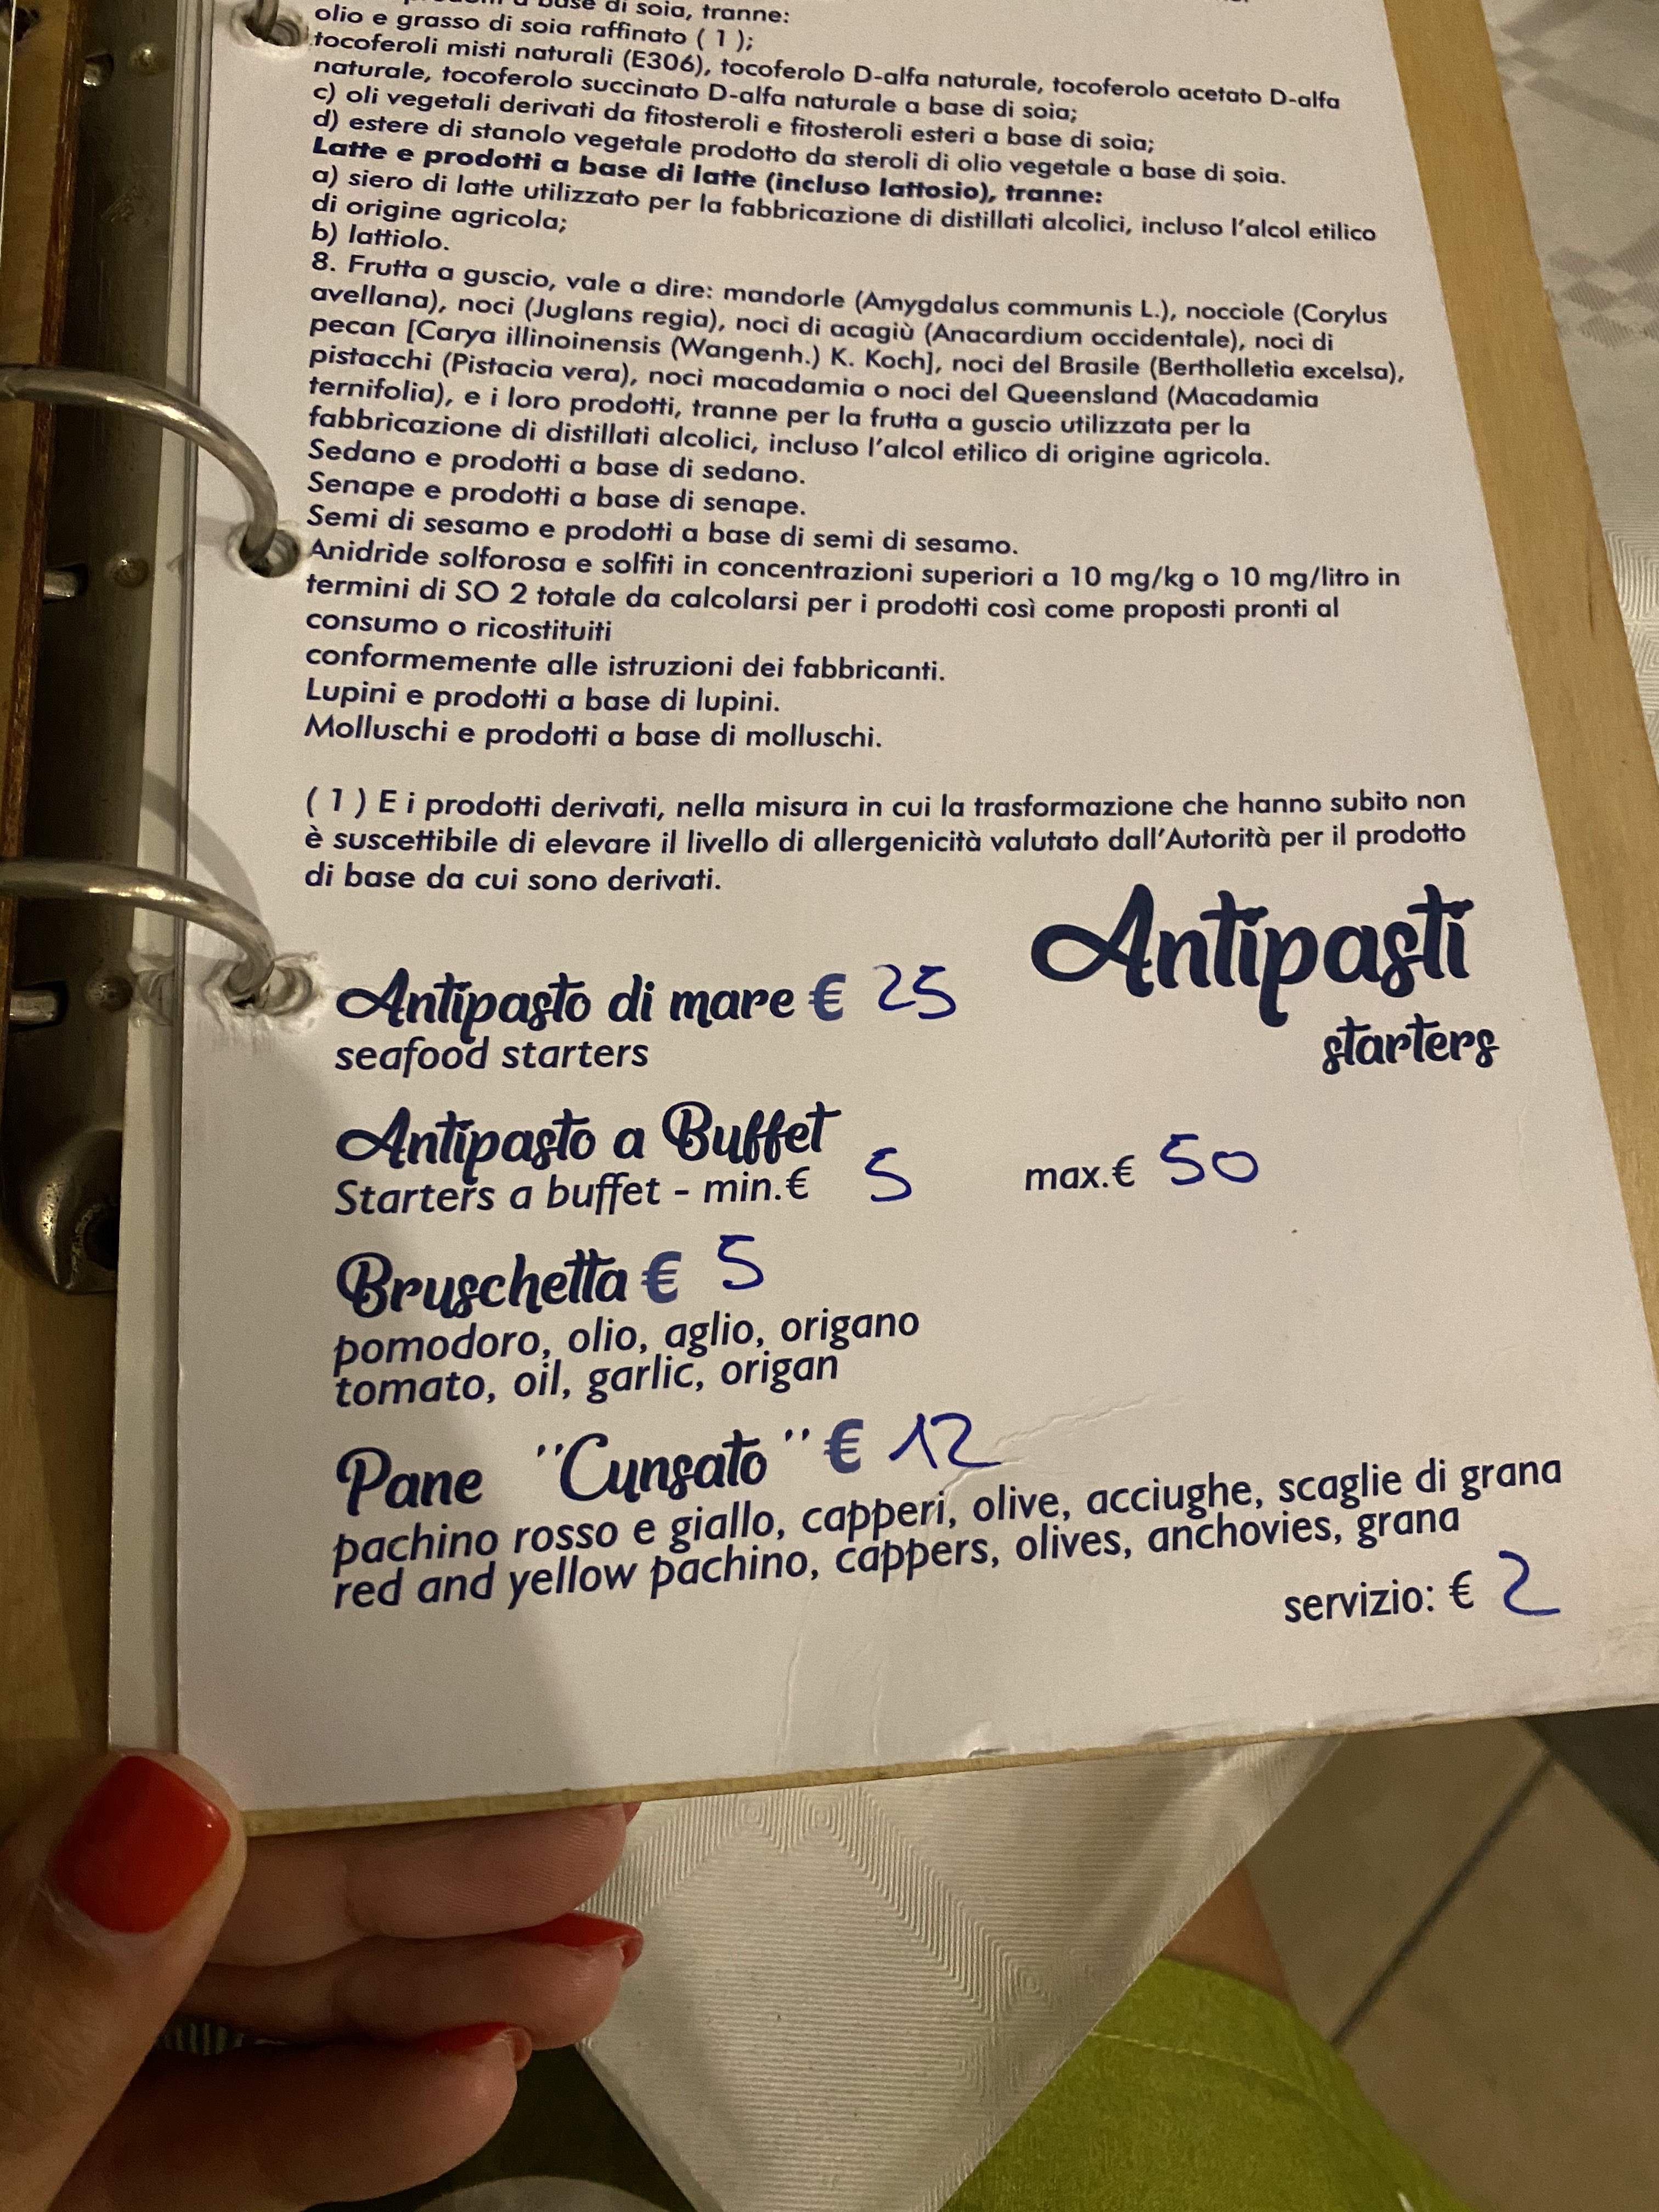 a base di soia, tranne:
olio e grasso di soia raffinato ( 1 );
tocoferoli misti naturali (E306), tocoferolo D-alfa naturale, tocoferolo acetato D-alfa
naturale, tocoferolo succinato D-alfa naturale a base di soia;
c) oli vegetali derivati da fitosteroli e fitosteroli esteri a base di soia;
d) estere di stanolo vegetale prodotto da steroli di olio vegetale a base di soia.
Latte e prodotti a base di latte (incluso lattosio), tranne:
a) siero di latte utilizzato per la fabbricazione di distillati alcolici, incluso l'alcol etilico
di origine agricola;
b) lattiolo.
8. Frutta a guscio, vale a dire: mandorle (Amygdalus communis L.), nocciole (Corylus
avellana), noci (Juglans regia), noci di acagiù (Anacardium occidentale), noci di
pecan [Carya illinoinensis (Wangenh.) K. Koch], noci del Brasile (Bertholletia excelsa),
pistacchi (Pistacia vera), noci macadamia o noci del Queensland (Macadamia
ternifolia), e i loro prodotti, tranne per la frutta a guscio utilizzata per la
fabbricazione di distillati alcolici, incluso l'alcol etilico di origine agricola.
Sedano e prodotti a base di sedano.
Senape e prodotti a base di senape.
Semi di sesamo e prodotti a base di semi di sesamo.
Anidride solforosa e solfiti in concentrazioni superiori a 10 mg/kg o 10 mg/litro in
termini di SO 2 totale da calcolarsi per i prodotti così come proposti pronti al
consumo o ricostituiti
conformemente alle istruzioni dei fabbricanti.
Lupini e prodotti a base di lupini.
Molluschi e prodotti a base di molluschi.
( 1 ) E i prodotti derivati, nella misura in cui la trasformazione che hanno subito non
è suscettibile di elevare il livello di allergenicità valutato dall'Autorità per il prodotto
di base da cui sono derivati.
Antipasti
starters
Antipasto di mare € 25
seafood starters
Antipasto a Buffet
Starters a buffet - min.€ 5 max.€ 50
Bruschetta € 5
pomodoro, olio, aglio, origano
tomato, oil, garlic, origan
Pane "Cunsato" € 12
pachino rosso e giallo, capperi, olive, acciughe, scaglie di grana
red and yellow pachino, cappers, olives, anchovies, grana
servizio: € 2